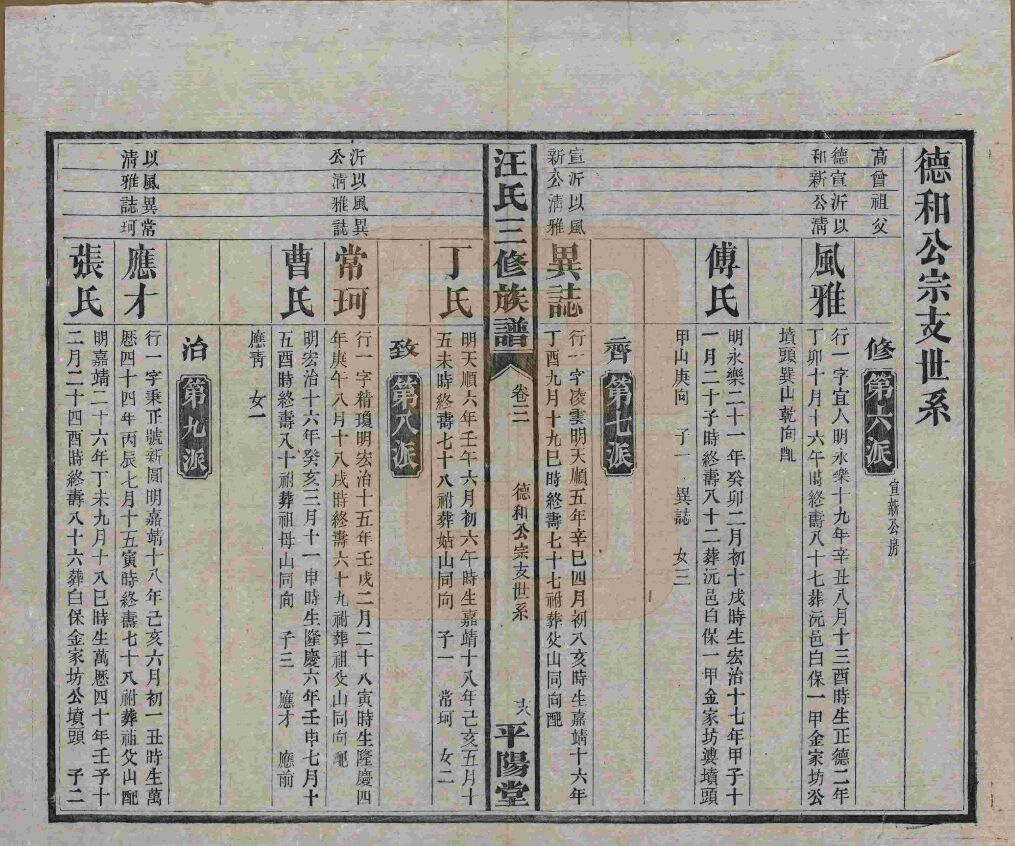 德和公宗支世系
高曾祖父
修 第六派 宣新公房
德宣沂以
和新公清
風雅
行一字宜人明永樂十九年辛丑八月十三酉時生正德二年
丁卯十月十六午時終壽八十七葬沅邑白保一甲金家坊公
墳頭巽山乾向配
傅氏
明永樂二十一年癸卯二月初十戌時生宏治十七年甲子十
一月二十子時終壽八十二葬沅邑白保一甲金家坊婆墳頭
甲山庚向 子一 異誌 女三
齊 第七派
宣沂以風
新公清雅
異誌
行一字凌雲明天順五年辛巳四月初八亥時生嘉靖十六年
丁酉九月十九巳時終壽七十七祔葬父山同向配
汪氏三修族譜
卷三
德和公宗支世系
平陽堂
丁氏
明天順六年壬午六月初六午時生嘉靖十八年己亥五月十
五未時終壽七十八祔葬姑山同向 子一 常珂 女二
致 第八派
沂以風異
公清雅誌
常珂
行一字精瓊明宏治十五年壬戌二月二十八寅時生隆慶四
年庚午八月十八戌時終壽六十九祔葬祖父山同向配
曹氏
明宏治十六年癸亥三月十一申時生隆慶六年壬申七月十
五酉時終壽八十祔葬祖母山同向 子三 應才 應前
應青 女一
治 第九派
以風異常
清雅誌珂
應才
行一字秉正號新圓明嘉靖十八年己亥六月初一丑時生萬
歷四十四年丙辰七月十五寅時終壽七十八祔葬祖父山配
張氏
明嘉靖二十六年丁未九月十八巳時生萬歷四十年壬子十
二月二十四酉時終壽八十六葬白保金家坊公墳頭 子二